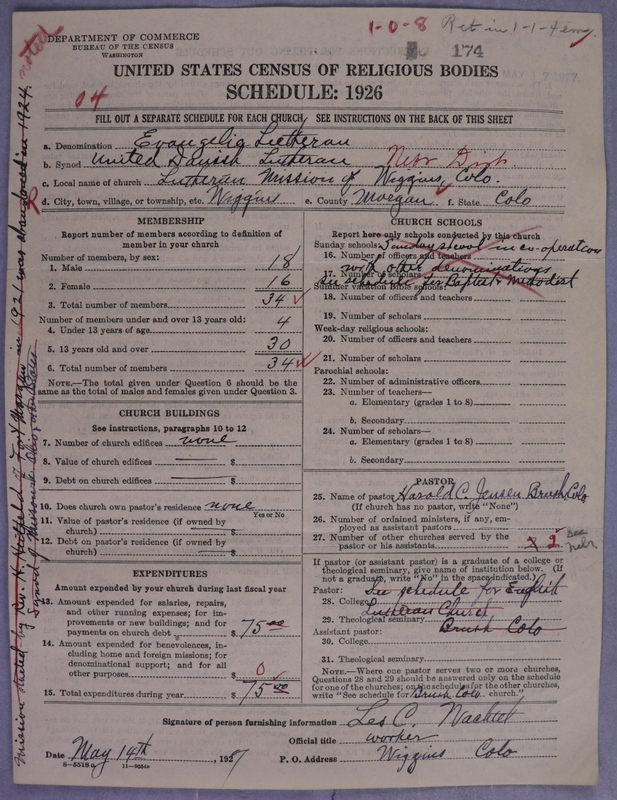 1-0-8 Ret in 1-1-4 em.
DEPARTMENT OF COMMERCE
BUREAU OF THE CENSUS
WASHINGTON
174
UNITED STATES CENSUS OF RELIGIOUS BODIES
SCHEDULE: 1926
04
FILL OUT A SEPARATE SCHEDULE FOR EACH CHURCH SEE INSTRUCTIONS ON THE BACK OF THIS SHEET
a. Denomination Evangelig Lutheran
b. Synod United Danish Lutheran Nebr Dist.
c. Local name of church Lutheran Mission of Wiggins, Colo.
d. City, town, village, or township, etc. Wiggins e. County Morgan f. State Colo
MEMBERSHIP
Report number of members according to definition of
member in your church
Number of members, by sex:
1. Male 18
2. Female 16
3. Total number of members 34
Number of members under and over 13 years old:
4. Under 13 years of age 4
5. 13 years old and over 30
6. Total number of members 34
NOTE.—The total given under Question 6 should be the
same as the total of males and females given under Question 3.
CHURCH BUILDINGS
See instructions, paragraphs 10 to 12
7. Number of church edifices none
8. Value of church edifices $
9. Debt on church edifices $
10. Does church own pastor's residence none
Yes or No
11. Value of pastor's residence (if owned by
church) $
12. Debt on pastor's residence (if owned by
church) $
EXPENDITURES
Amount expended by your church during last fiscal year
13. Amount expended for salaries, repairs,
and other running expenses; for im-
provements or new buildings; and for
payments on church debt $ 75.00
14. Amount expended for benevolences, in-
cluding home and foreign missions; for
denominational support; and for all
other purposes 0
15. Total expenditures during year $ 75.00
CHURCH SCHOOLS
Report here only schools conducted by this church
Sunday schools: Sunday school in co-operation
16. Number of officers and teachers
with other denominations
17. Number of scholars
see schedule for Baptist & Methodist
Summer vacation Bible schools:
18. Number of officers and teachers
19. Number of scholars
Week-day religious schools:
20. Number of officers and teachers
21. Number of scholars
Parochial schools:
22. Number of administrative officers
23. Number of teachers—
a. Elementary (grades 1 to 8)
b. Secondary
24. Number of scholars—
a. Elementary (grades 1 to 8)
b. Secondary
PASTOR
25. Name of pastor Harold C. Jensen Brush, Colo
(If church has no pastor, write "None")
26. Number of ordained ministers, if any, em-
ployed as assistant pastors
27. Number of other churches served by the
pastor or his assistants 2 See Nebr.
If pastor (or assistant pastor) is a graduate of a college or
theological seminary, give name of institution below. (If
not a graduate, write "No" in the space indicated.)
Pastor: See schedule for English
28. College Lutheran Church
29. Theological seminary Brush Colo
Assistant pastor:
30. College
31. Theological seminary
NOTE.—Where one pastor serves two or more churches,
Questions 28 and 29 should be answered only on the schedule
for one of the churches; on the schedules for the other churches,
write "See schedule for Brush Colo church."
Signature of person furnishing information Les C.
Official title worker
Date May 14th, 1927 P. O. Address Wiggins Colo
8—5518a 11—9254a
noted
Mission started by Rev. H. of Fort Morgan in 1921 was abandoned in 1924.
Synod of Missouri Ohio other States